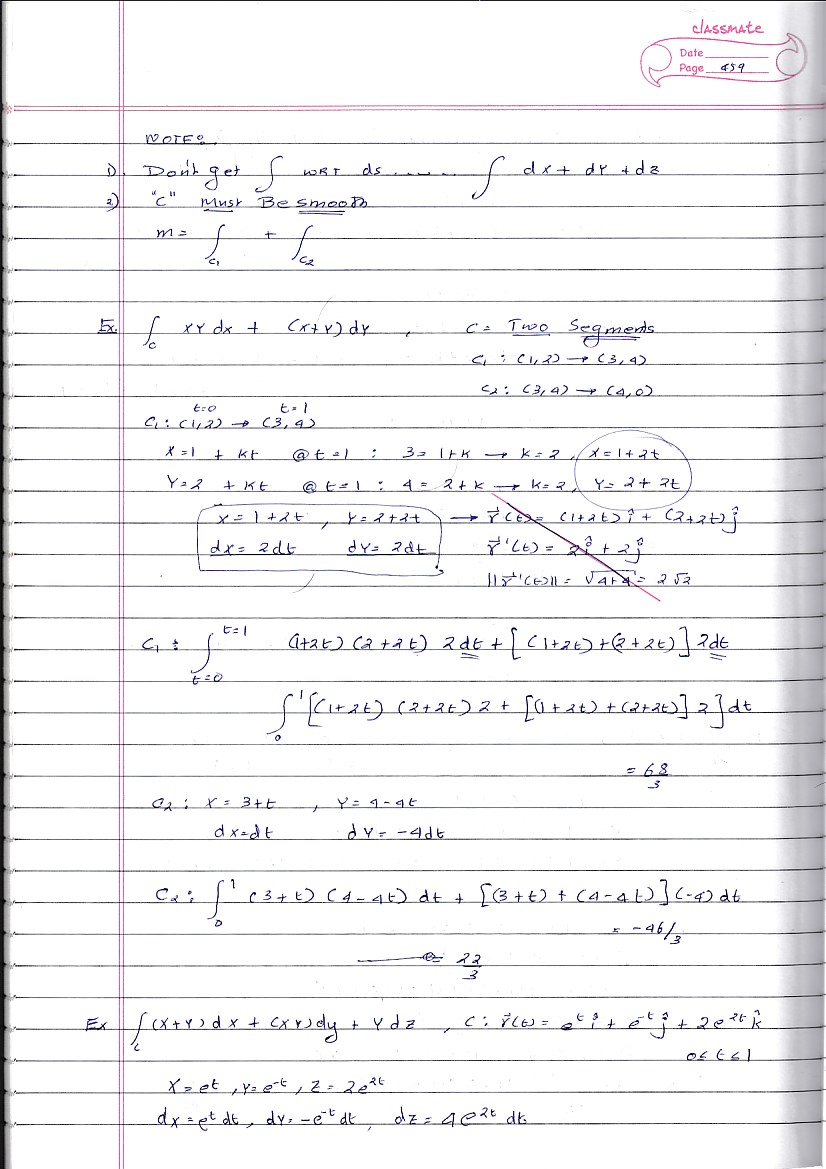 classmate
Date
Page 459
NOTE:
1). Don't get ∫ WRT ds ....... ∫ dx + dy + dz
2) "C" Must Be smooth
m = ∫C1 + ∫C2
Ex. ∫c xy dx + (x+y) dy , C = Two Segments
C1 : (1,2) → (3,4)
C2 : (3,4) → (4,0)
t=0 t=1
C1 : (1,2) → (3,4)
X=1 + kt @t=1 : 3=1+k → k=2, X=1+2t
Y=2 + kt @t=1 : 4=2+k → k=2, Y=2+2t
x=1+2t , y=2+2t → r⃗(t)= (1+2t)î + (2+2t)ĵ
dx = 2dt dy = 2dt r⃗'(t) = 2î + 2ĵ
||r⃗'(t)|| = √4+4 = 2√2
C1 : ∫t=0^t=1 (1+2t)(2+2t) 2dt + [(1+2t)+(2+2t)] 2dt
∫0^1 [(1+2t)(2+2t)2 + [(1+2t)+(2+2t)] 2] dt
= 68/3
C2 : x = 3+t , y = 4-4t
dx=dt dy = -4dt
C2 : ∫0^1 (3+t)(4-4t) dt + [(3+t)+(4-4t)](-4)dt
= -46/3
= 22/3
Ex ∫c (x+y)dx + (xy)dy + y dz , C : r⃗(t) = e^t î + e^-t ĵ + 2e^2t k̂
0≤t≤1
X=e^t , Y=e^-t , Z=2e^2t
dx=e^t dt, dy=-e^-t dt, dz=4e^2t dt